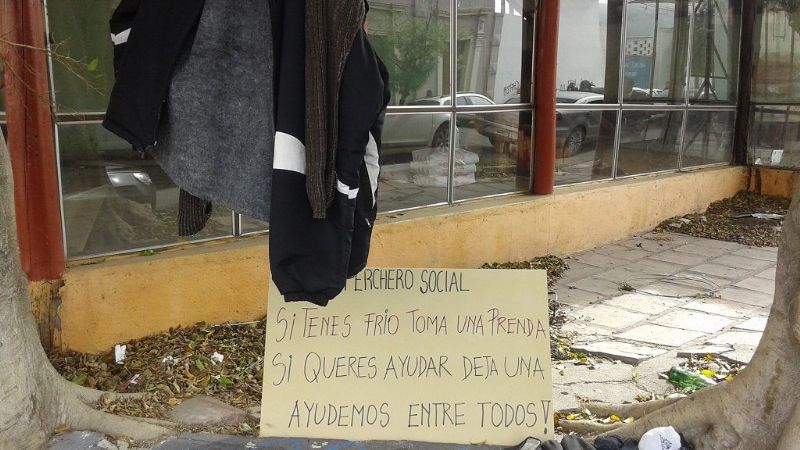 PERCHERO SOCIAL
SI TENES FRIO TOMA UNA PRENDA
SI QUERES AYUDAR DEJA UNA
AYUDEMOS ENTRE TODOS!